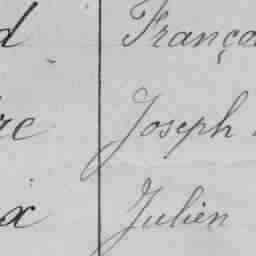 d Franço
re Joseph
x Julien